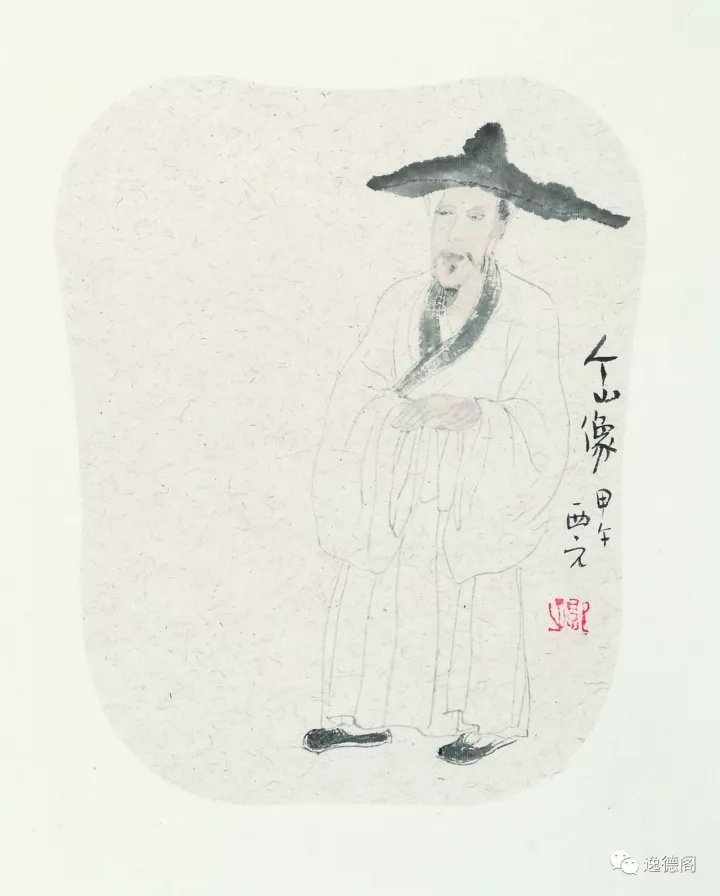 个山像
甲午
西元
逸德阁